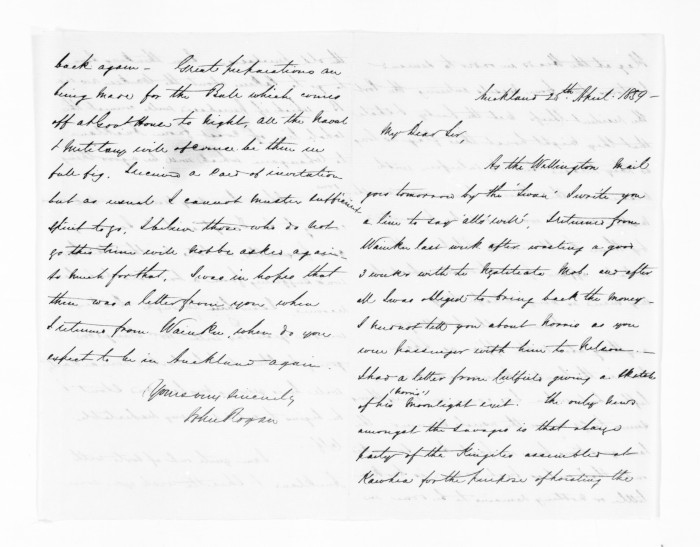 Auckland 28th April. 1859 -
My Dear Sir,
As the Wellington Mail
goes tomorrow by the 'Swan' I write you
a line to say 'alls' well'. I returned from
Waiuku last week after wasting a good
2 weeks with the Ngatiteata Mob. and after
all I was obliged to bring back the money -
I need not tell you about Norris as you
were passenger with him to Nelson -
I had a letter from giving a sketch
of his (Norris') Moonlight exit. the only news
amongst the Savages is that a large
party of the Kingites assembled at
Kawhia for the purpose of hoisting the
back again - Great preparations are
being made for the Ball which comes
off at Govt House to night, all the Naval
& Military will of course be there in
full fig. I received a Card of invitation
but as usual I cannot muster sufficient
spirit to go. I believe those who do not
go this time will not be asked again -
so much for that. I was in hopes that
there was a letter from you when
I returned from Waiuku. when do you
expect to be in Auckland again.
Yours very sincerely
John Rogan